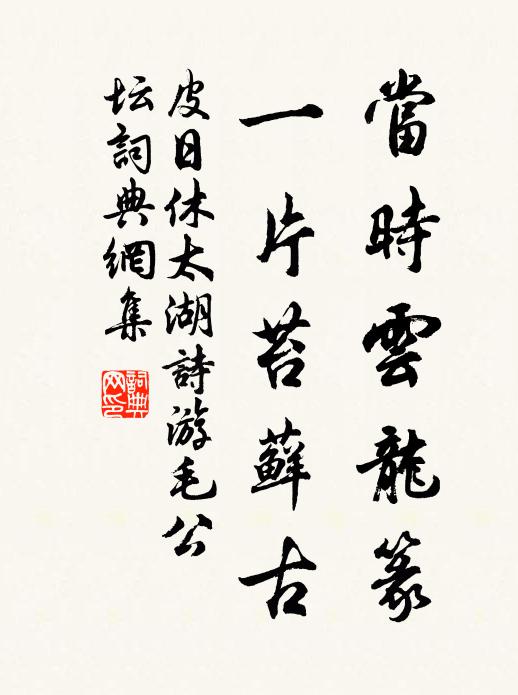 當時雲龍篆
一片苔蘚古
皮日休太湖詩游毛公
坛詞典網集
詞典
网印